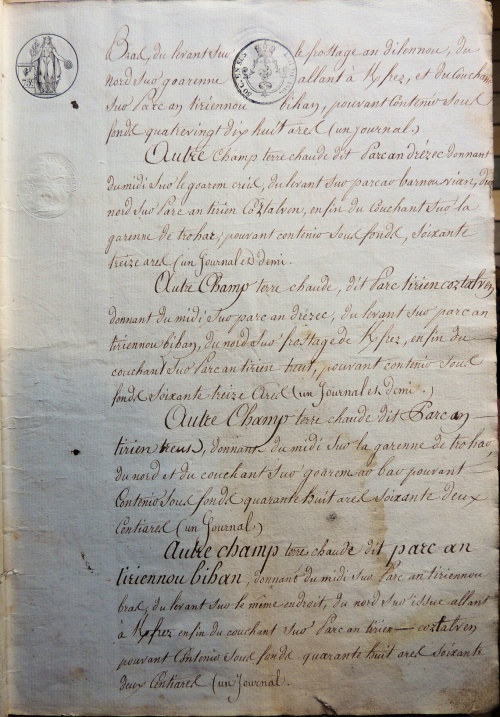 Bras, du levant sur le frostage an dilennou, du
nord sur goarenne allant à Kfrez, et du Couchant
sur Parc an tiriennou bihan, pouvant Contenir sous
fonds quatrevingt dix huit ares (un journal)
Autre Champ terre chaude dit Parc an drézec donnant
du midi sur le goarem creis, du levant sur parc ao barnou vian, du
nord sur Parc an tirien Cóztalven, enfin du Couchant sur la
garenne de trohar, pouvant contenir sous fonds, soixante
treize ares (un Journal et demi.
Autre Champ terre chaude, dit Parc tirien coztalven
donnant du midi sur parc an drézec, du levant sur parc an
tiriennou bihan, du nord sur frostage de Kfrez, enfin du
couchant sur Parc an tirien treus, pouvant contenir sous
fonds soixante treize ares (un Journal et demi.)
Autre Champ terre chaude dit Parc an
tirien treus, donnant du midi sur la garenne de trohar
du nord et du couchant sur goarem ao bao pouvant
Contenir sous fonds quarante huit ares soixante deux
Centiares (un Journal)
Autre champ terre chaude dit parc an
tiriennou bihan, donnant du midi sur Parc an tiriennou
bras, du levant sur le même endroit, du nord sur issue allant
à Kfrez enfin du couchant sur Parc an tirien — coztalven
pouvant Contenir sous fonds quarante huit ares soixante
deux Centiares (un Journal.